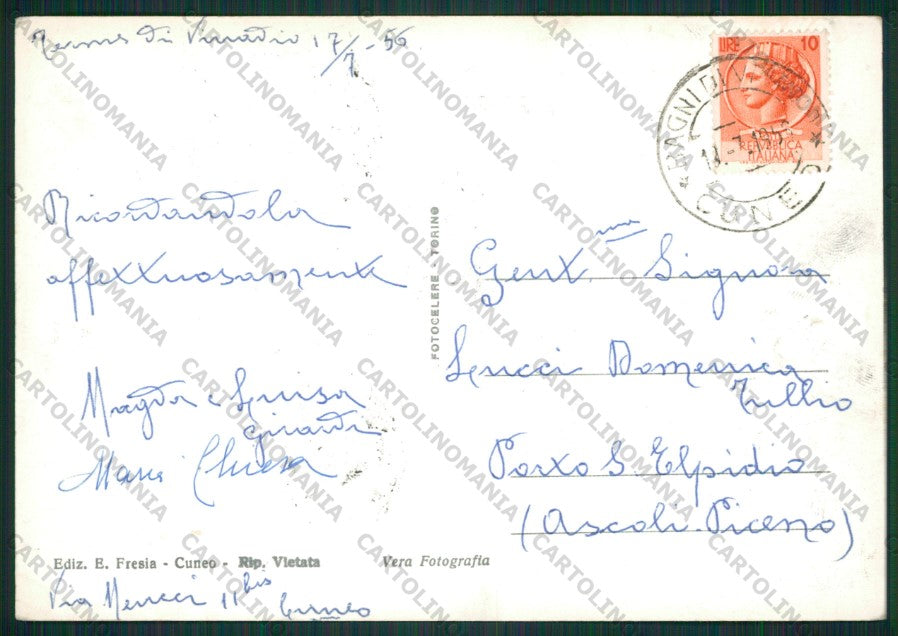 Terme di Vinadio 17/7-56
Ricordandola
affettuosamente
Magda e Luisa
Girardi
Maria Chiesa
Ediz. E. Fresia - Cuneo - Rip. Vietata
Via Meucci 11 bis
Cuneo
FOTOCELERE - TORINO
Vera Fotografia
LIRE 10
REPUBBLICA
ITALIANA
BAGNI DI
CUNEO
Gent.ma Signora
Leucci Domenica
Tullio
Porto S. Elpidio
(Ascoli-Piceno)
CARTOLINOMANIA